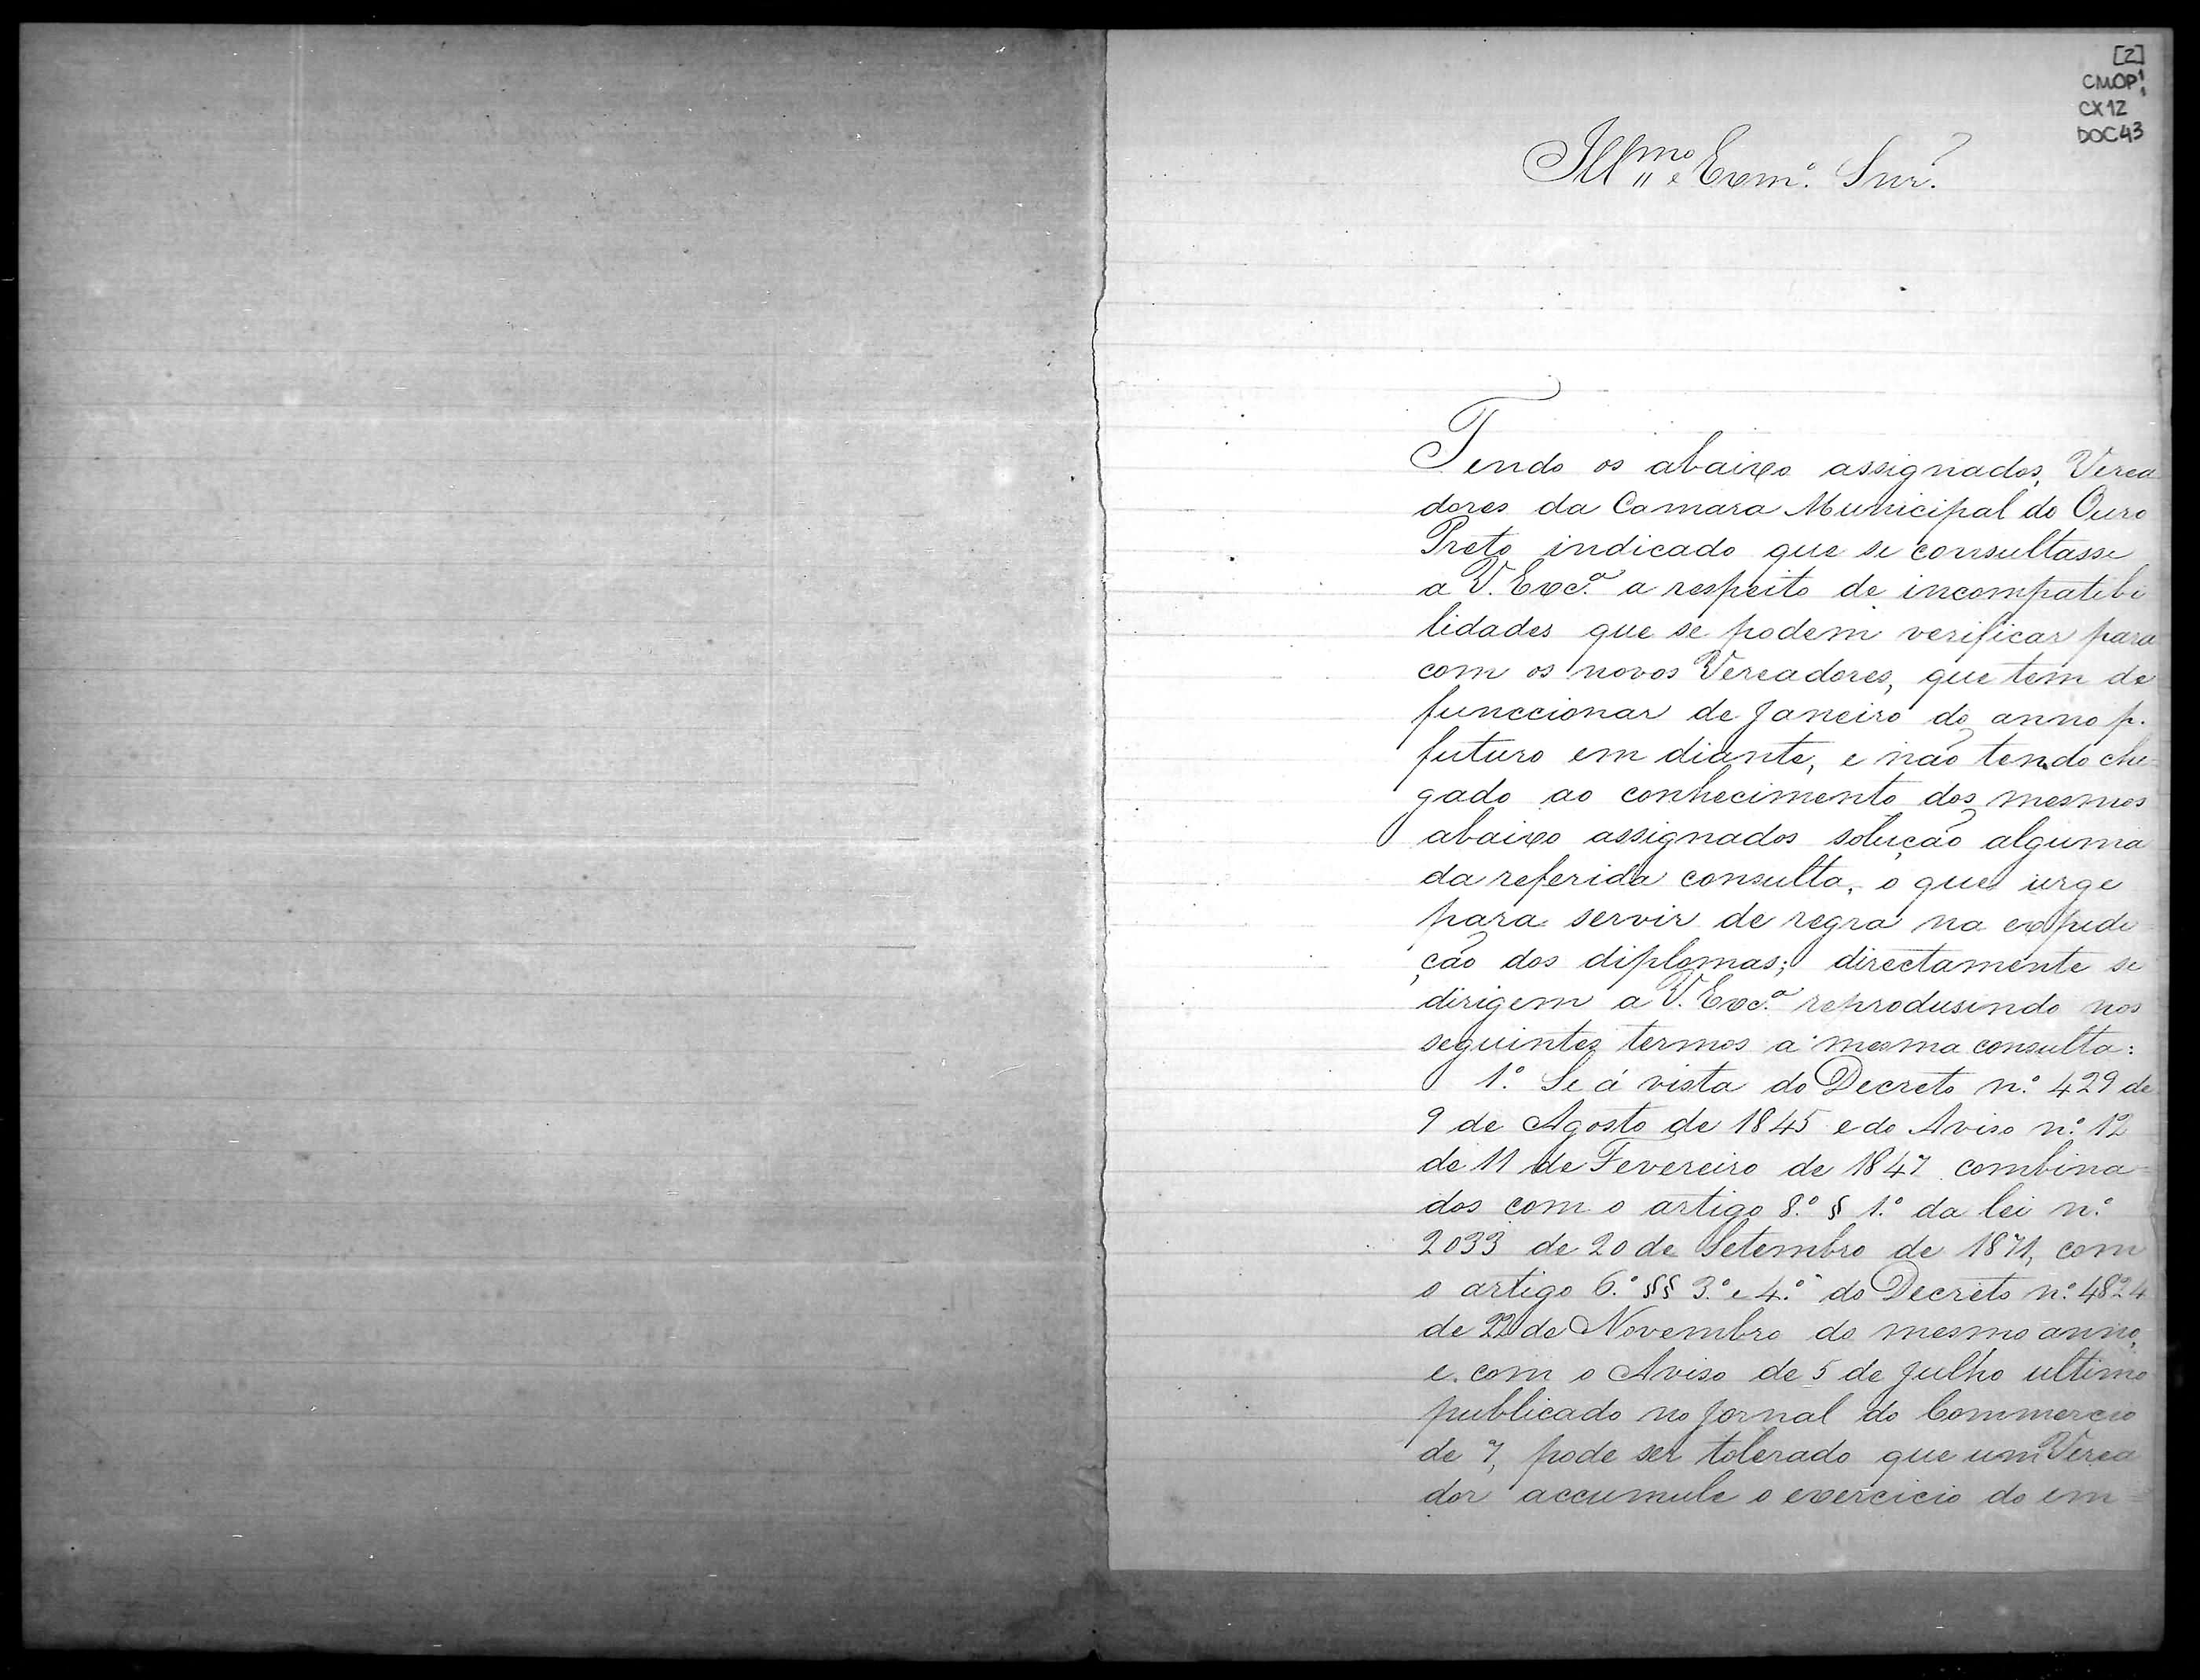 [2]
CMOP1
CX12
DOC43
Illmo e Exmº. Snr.
Tendo os abaixo assignados, Verea
dores da Camara Municipal do Ouro
Preto indicado que se consultasse
a V. Excª. a respeito de incompatibi
lidades que se podem verificar para
com os novos Vereadores, que tem de
funccionar de Janeiro do anno p.
futuro em diante, e não tendo che=
gado ao conhecimento dos mesmos
abaixo assignados solução alguma
da referida consulta, o que urge
para servir de regra na expedi=
ção dos diplomas; directamente se
dirigem a V. Excª. reprodusindo nos
seguintes termos a mesma consulta:
1.º Se á vista do Decreto n.º 429 de
9 de Agosto de 1845 e do Aviso n.º 12
de 11 de Fevereiro de 1847 combina=
dos com o artigo 8.º § 1.º da lei n.º
2033 de 20 de Setembro de 1871, com
o artigo 6.º §§ 3.º e 4.º do Decreto n.º 4824
de 22 de Novembro do mesmo anno,
e com o Aviso de 5 de Julho ultimo
publicado no Jornal do Commercio
de 7, pode ser tolerado que um Verea
dor accumule o exercicio do em=